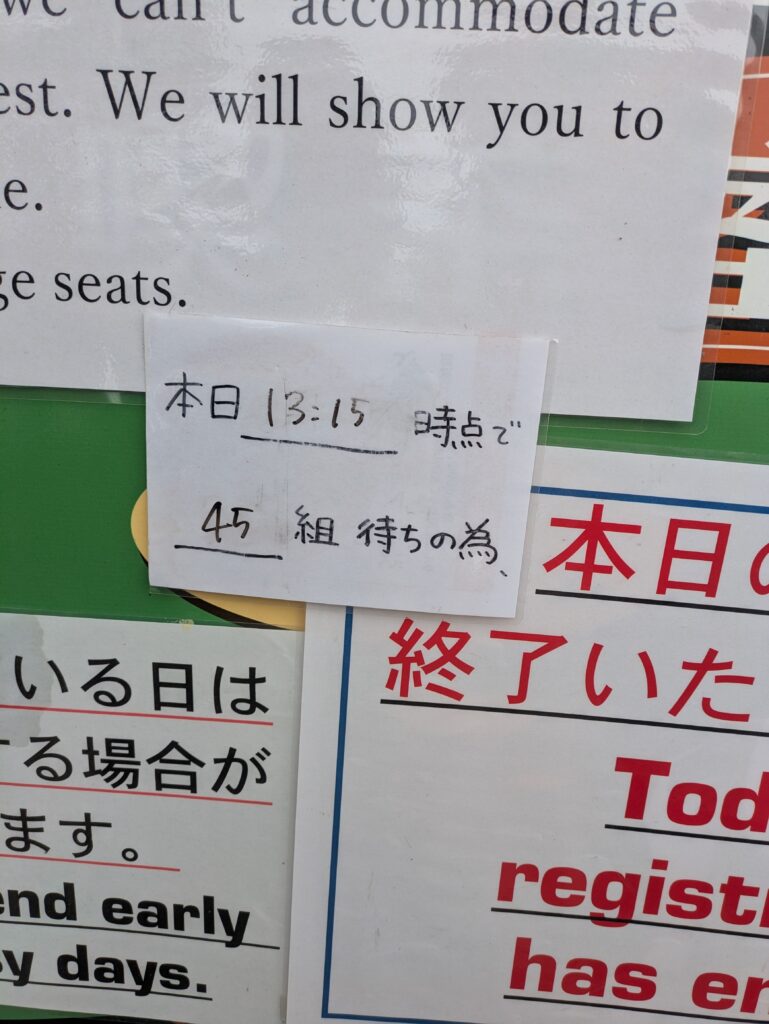 we can't accommodate
est. We will show you to
e.
ge seats.
本日 13:15 時点で
45 組 待ちの為、
いる日は
する場合が
ます。
end early
sy days.
本日の
終了いた
Tod
registr
has en